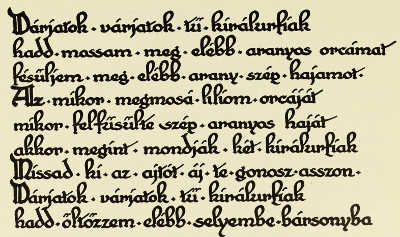 Várjatok · várjatok · tű · kirákurfiak
hadd · massam · meg · elébb · aranyos orcámat
fésűljem · meg · elébb · arany · szép · hajamot ·
Alz · mikor · megmosá · liliom · orcáját
mikor · felfűsűlte szép · aranyos haját
akkor · megint · mondják · két · kirákurfiak
Nissad · ki · az · ajtót · áj · te · gonosz · asszon ·
Várjatok · várjatok · tű · kirákurfiak
hadd · öltözzem · elébb · selyembe · bársonyba